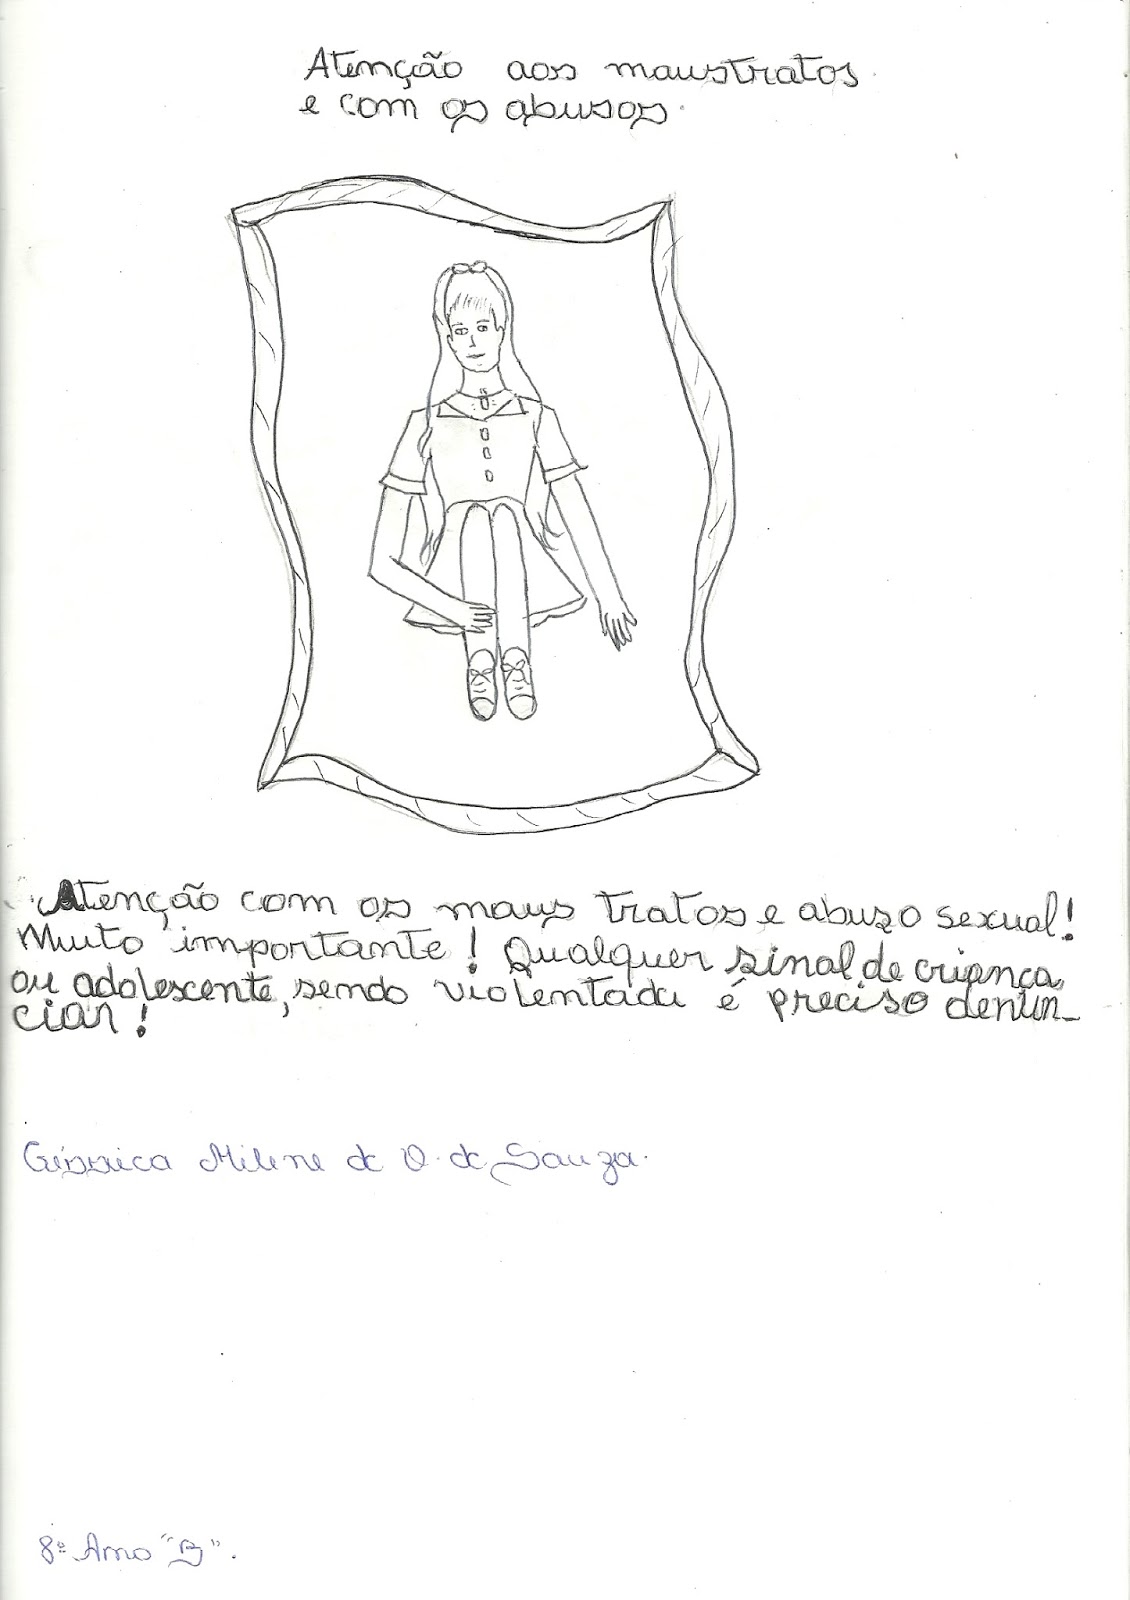 Atenção aos maustratos
e com os abusos.
Atenção com os maus tratos e abuzo sexual!
Muito importante! Qualquer sinal de criança
ou adolescente, sendo violentada é preciso denun_
ciar!
Géssica Milene de O. de Souza.
8º Ano "B".